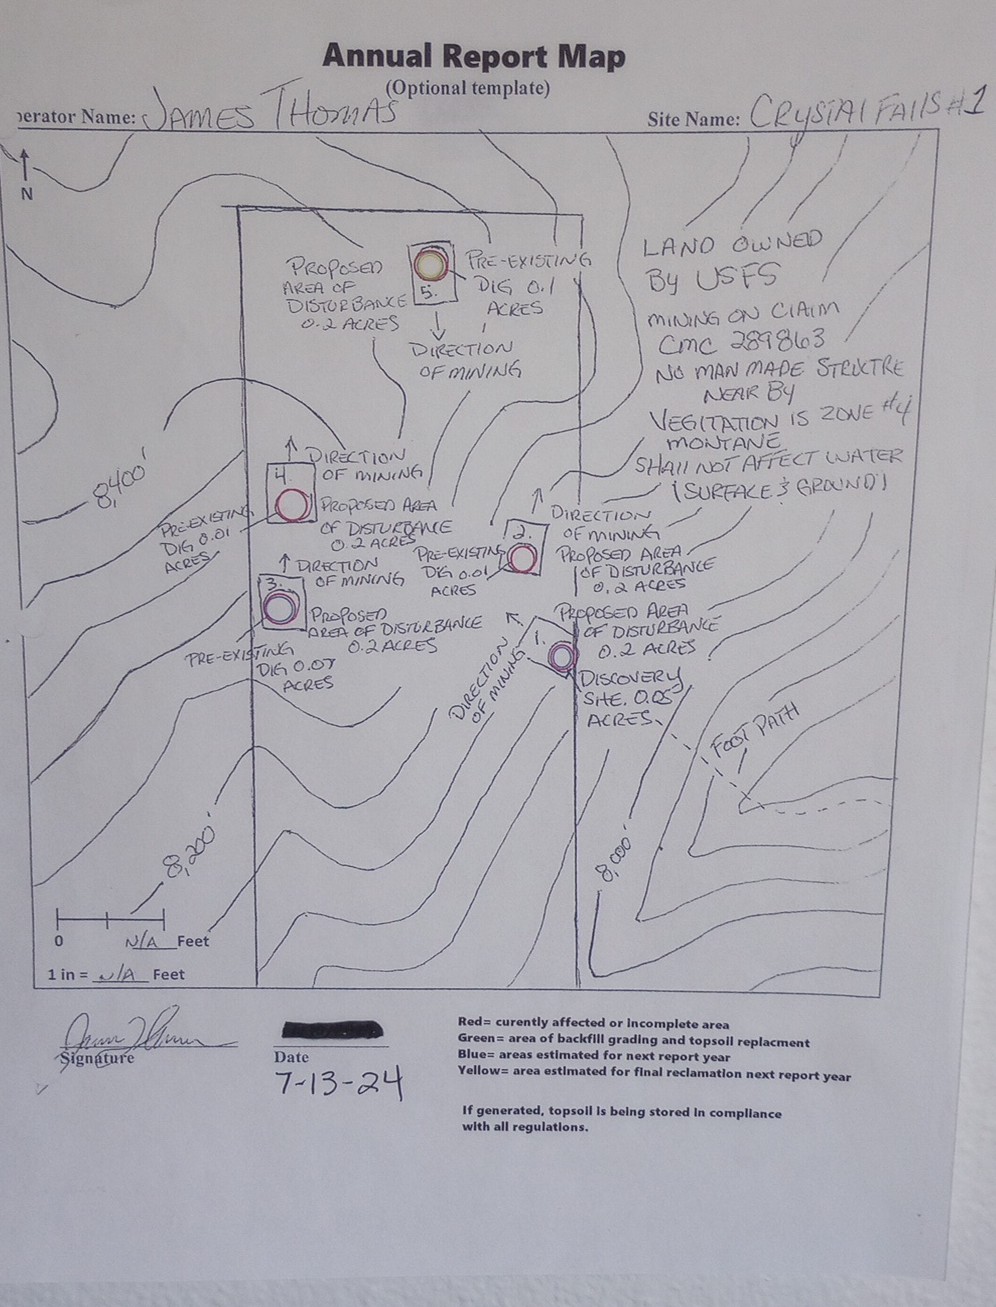 Annual Report Map
(Optional template)
erator Name: JAMES THOMAS
Site Name: CRYSTAL FALLS #1
N
LAND OWNED
BY USFS
MINING ON CLAIM
CMC 289863
NO MAN MADE STRUCTRE
NEAR BY
VEGITATION IS ZONE #4
MONTANE
SHALL NOT AFFECT WATER
(SURFACE & GROUND)
PROPOSED
AREA OF
DISTURBANCE
0.2 ACRES
5.
PRE-EXISTING
DIG 0.1
ACRES
DIRECTION
OF MINING
8,400'
4.
DIRECTION
OF MINING
PROPOSED AREA
OF DISTURBANCE
0.2 ACRES
PRE-EXISTING
DIG 0.01
ACRES
2.
DIRECTION
OF MINING
PROPOSED AREA
OF DISTURBANCE
0.2 ACRES
PRE-EXISTING
DIG 0.01
ACRES
3.
DIRECTION
OF MINING
PROPOSED
AREA OF DISTURBANCE
0.2 ACRES
PRE-EXISTING
DIG 0.07
ACRES
1.
PROPOSED AREA
OF DISTURBANCE
0.2 ACRES
DIRECTION
OF MINING
DISCOVERY
SITE. 0.05
ACRES.
FOOT PATH
8,200'
8,000'
0 N/A Feet
1 in = N/A Feet
Signature
Date
7-13-24
Red= curently affected or incomplete area
Green= area of backfill grading and topsoil replacment
Blue= areas estimated for next report year
Yellow= area estimated for final reclamation next report year
If generated, topsoil is being stored in compliance
with all regulations.